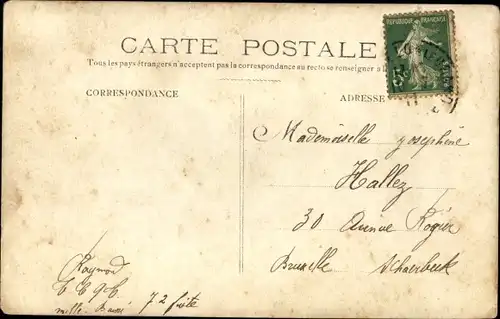 CARTE POSTALE
Tous les pays étrangers n'acceptent pas la correspondance au recto se renseigner à la
CORRESPONDANCE
ADRESSE
REPUBLIQUE FRANÇAISE
Mademoiselle Josephine
Hallez
30 Avenue Rogier
Bruxelle Schaerbeek
Raymond
72 suite